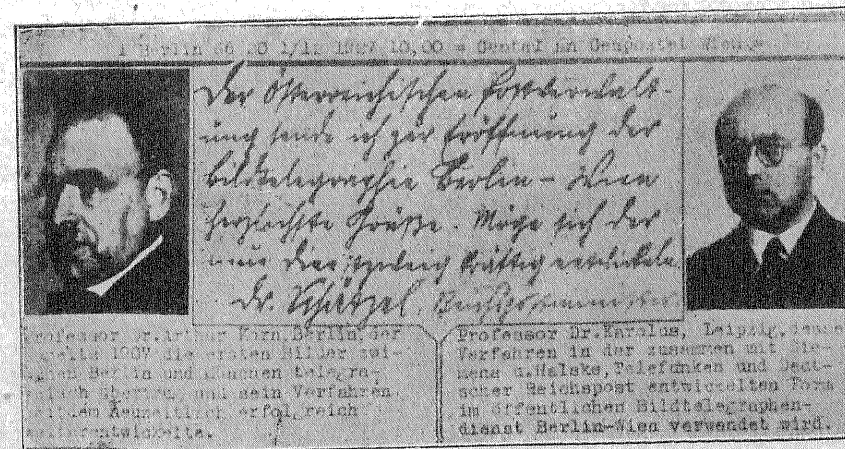 1 Berlin 66 50 1/12 1927 10,00 = Gental an Genpostel Wien =
Der Österreichischen Postverwalt-
ung sende ich zur Eröffnung der
Bildtelegraphie Berlin – Wien
herzlichste Grüße. Möge sich der
neue Dienstzweig kräftig entwickeln
Dr. Schätzel, Reichspostminister
Professor Dr. Arthur Korn, Berlin, der
bereits 1907 die ersten Bilder zwi-
schen Berlin und München telegra-
phisch übertrug und sein Verfahren
seitdem neuzeitlich erfolgreich
weiterentwickelte.
Professor Dr.Karolus, Leipzig, dessen
Verfahren in der zusammen mit Sie-
mens u.Halske, Telefunken und Deut-
scher Reichspost entwickelten Form
im öffentlichen Bildtelegraphen-
dienst Berlin-Wien verwendet wird.